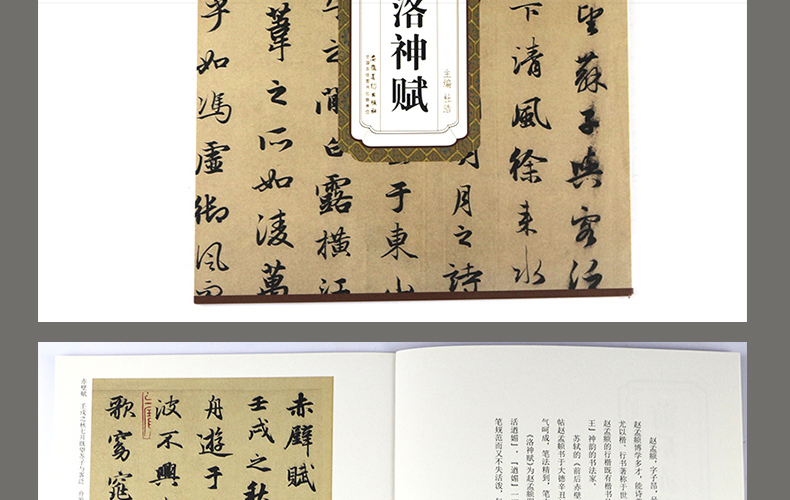 望蘇子與客泛
下清風徐来水
月之詩
于東山
之間白露橫江
葦之所如凌萬
乎如馮虛御風而
洛神赋
主编 杜浩
安徽美术出版社
赵孟頫，字子昂，
赵孟頫博学多才，能诗
尤以楷、行书著称于世
王』神韵的书法家。
赵孟頫的行楷既有楷书
苏轼的《前后赤壁
帖赵孟頫书于大德辛丑
气呵成，笔法精到，笔
《洛神赋》为赵孟頫
活遒媚』，『遒媚』一
笔规范而又不失活泼，
赤壁賦
壬戌之秋
舟遊于
波不興
歌窈窕
赤壁赋 壬戌之秋七月既望苏子与客泛